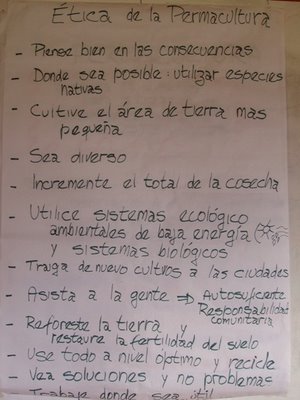 Ética de la Permacultura
- Piense bien en las consecuencias
- Donde sea posible: utilizar especies
nativas
- Cultive el área de tierra mas
pequeña
- Sea diverso
- Incremente el total de la cosecha
- Utilice sistemas ecológico
ambientales de baja energía
y sistemas biológicos
- Traiga de nuevo cultivos a las ciudades
- Asista a la gente ⇒ Autosuficiente
Responsabilidad
comunitaria
- Reforeste la tierra y
restaure la fertilidad del suelo
- Use todo a nivel óptimo y recicle
- Vea soluciones y no problemas
- Trabaje donde sea útil